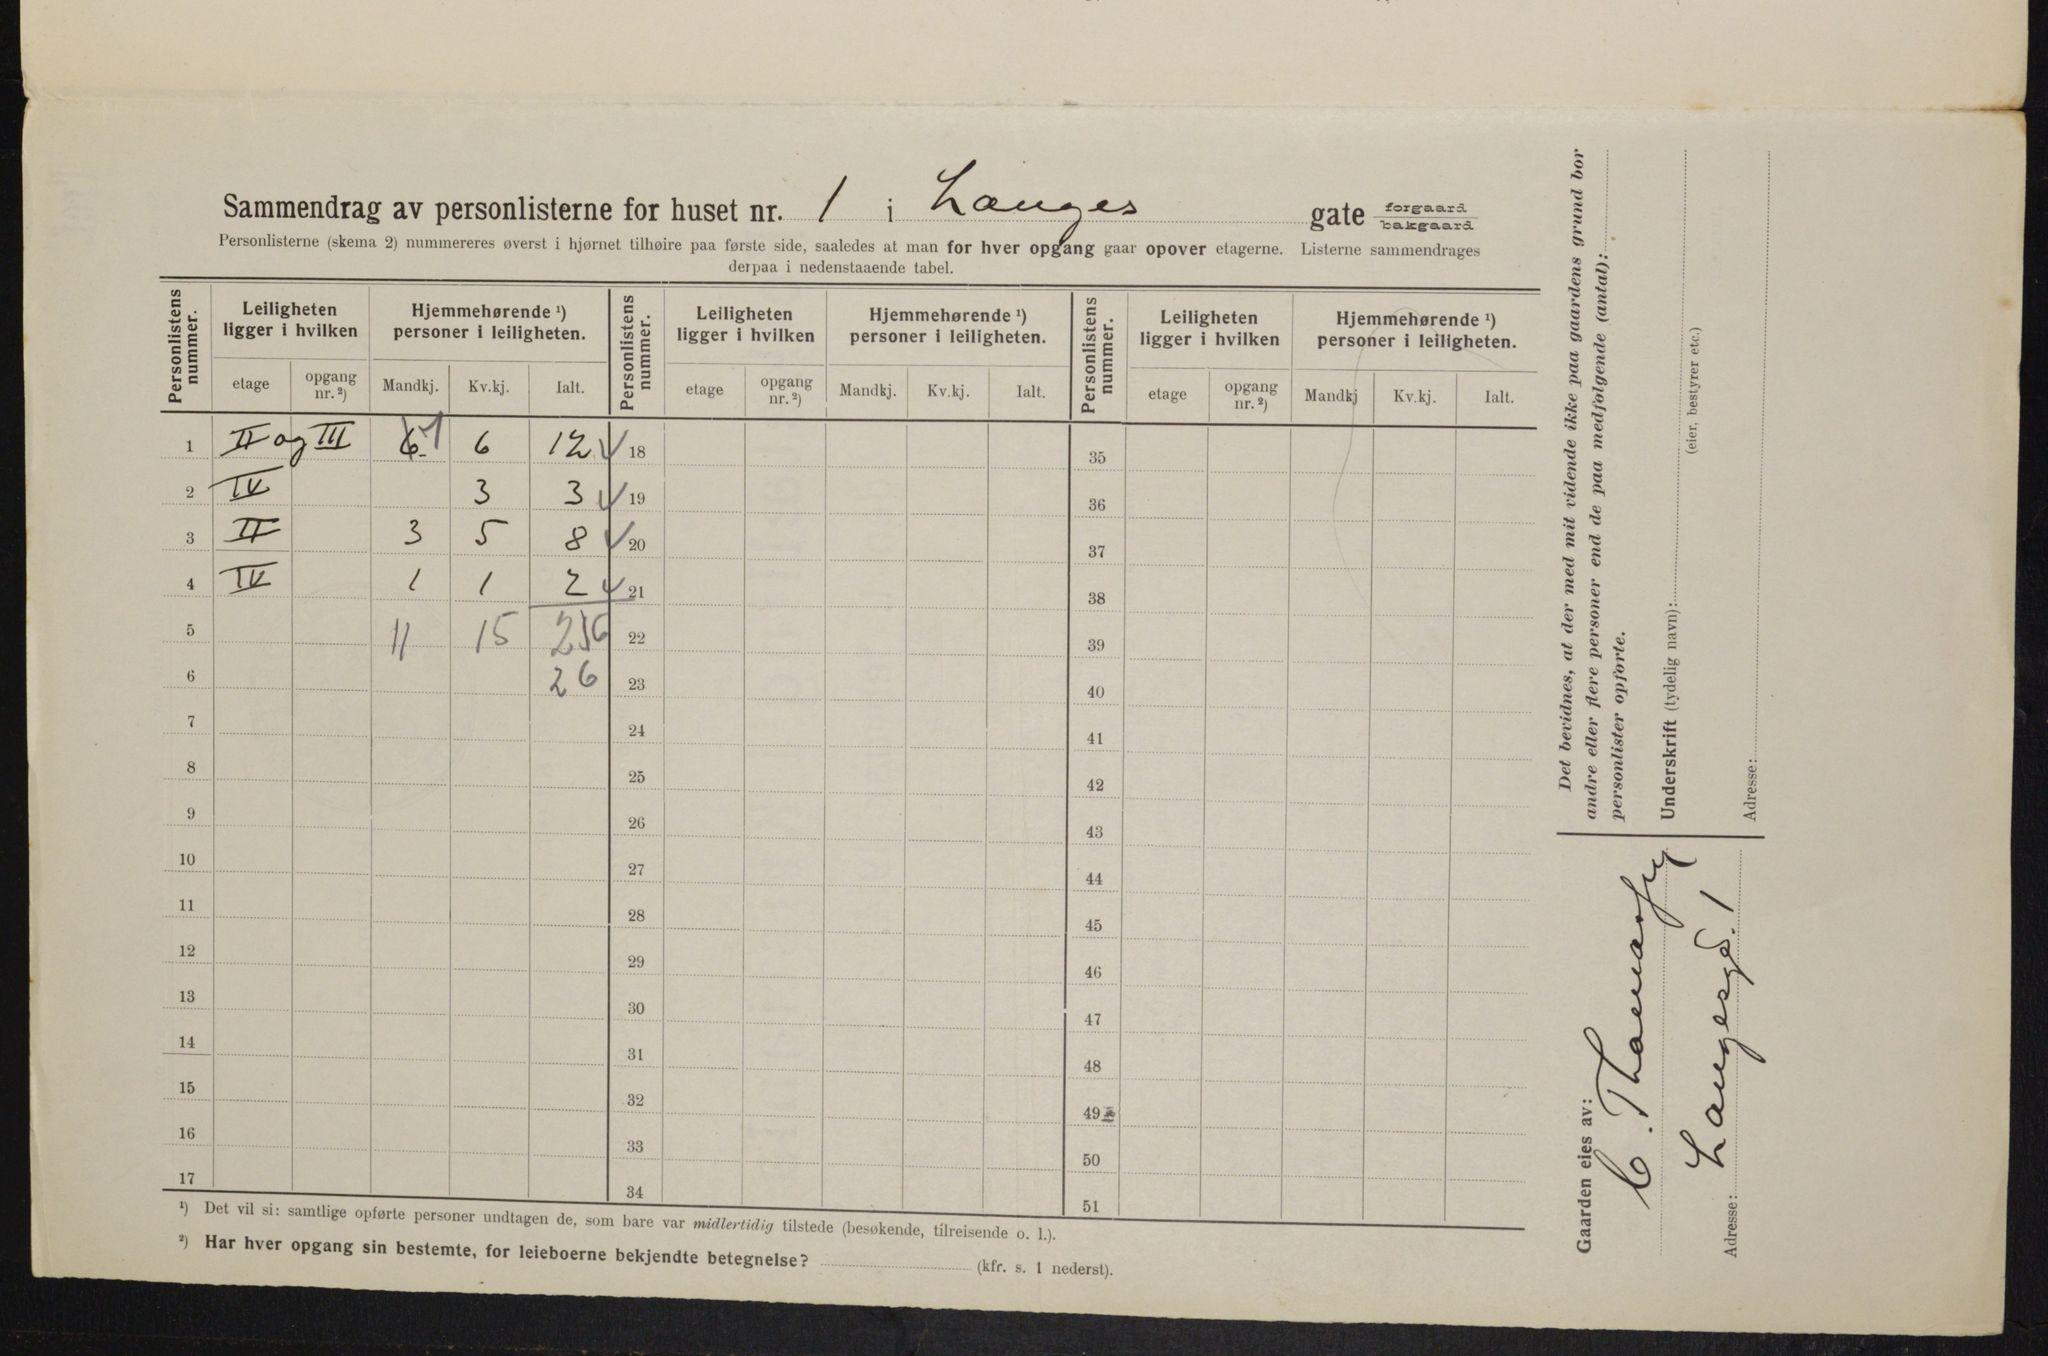 Sammendrag av personlisterne for huset nr. 1 i Langes gate forgaard bakgaard
Personlisterne (skema 2) nummereres øverst i hjørnet tilhøire paa første side, saaledes at man for hver opgang gaar opover etagerne. Listerne sammendrages
derpaa i nedenstaaende tabel.
Personlistens nummer. Leiligheten ligger i hvilken Hjemmehørende ¹) personer i leiligheten. Personlistens nummer. Leiligheten ligger i hvilken Hjemmehørende ¹) personer i leiligheten. Personlistens nummer. Leiligheten ligger i hvilken Hjemmehørende ¹) personer i leiligheten.
etage opgang nr. ²) Mandkj. Kv.kj. Ialt. etage opgang nr. ²) Mandkj. Kv.kj. Ialt. etage opgang nr. ²) Mandkj Kv.kj. Ialt.
1 II og III 6 6 12 18 35
2 IV 3 3 19 36
3 II 3 5 8 20 37
4 IV 1 1 2 21 38
5 11 15 22 39
6 26 23 40
7 24 41
8 25 42
9 26 43
10 27 44
11 28 45
12 29 46
13 30 47
14 31 48
15 32 49
16 33 50
17 34 51
¹) Det vil si: samtlige opførte personer undtagen de, som bare var midlertidig tilstede (besøkende, tilreisende o. l.).
²) Har hver opgang sin bestemte, for leieboerne bekjendte betegnelse? (kfr. s. 1 nederst).
Det bevidnes, at der med mit vidende ikke paa gaardens grund bor
andre eller flere personer end de paa medfølgende (antal):
personlister opførte.
Underskrift (tydelig navn):
(eier, bestyrer etc.)
Adresse:
Gaarden eies av:
C.
Adresse: Langesgd. 1